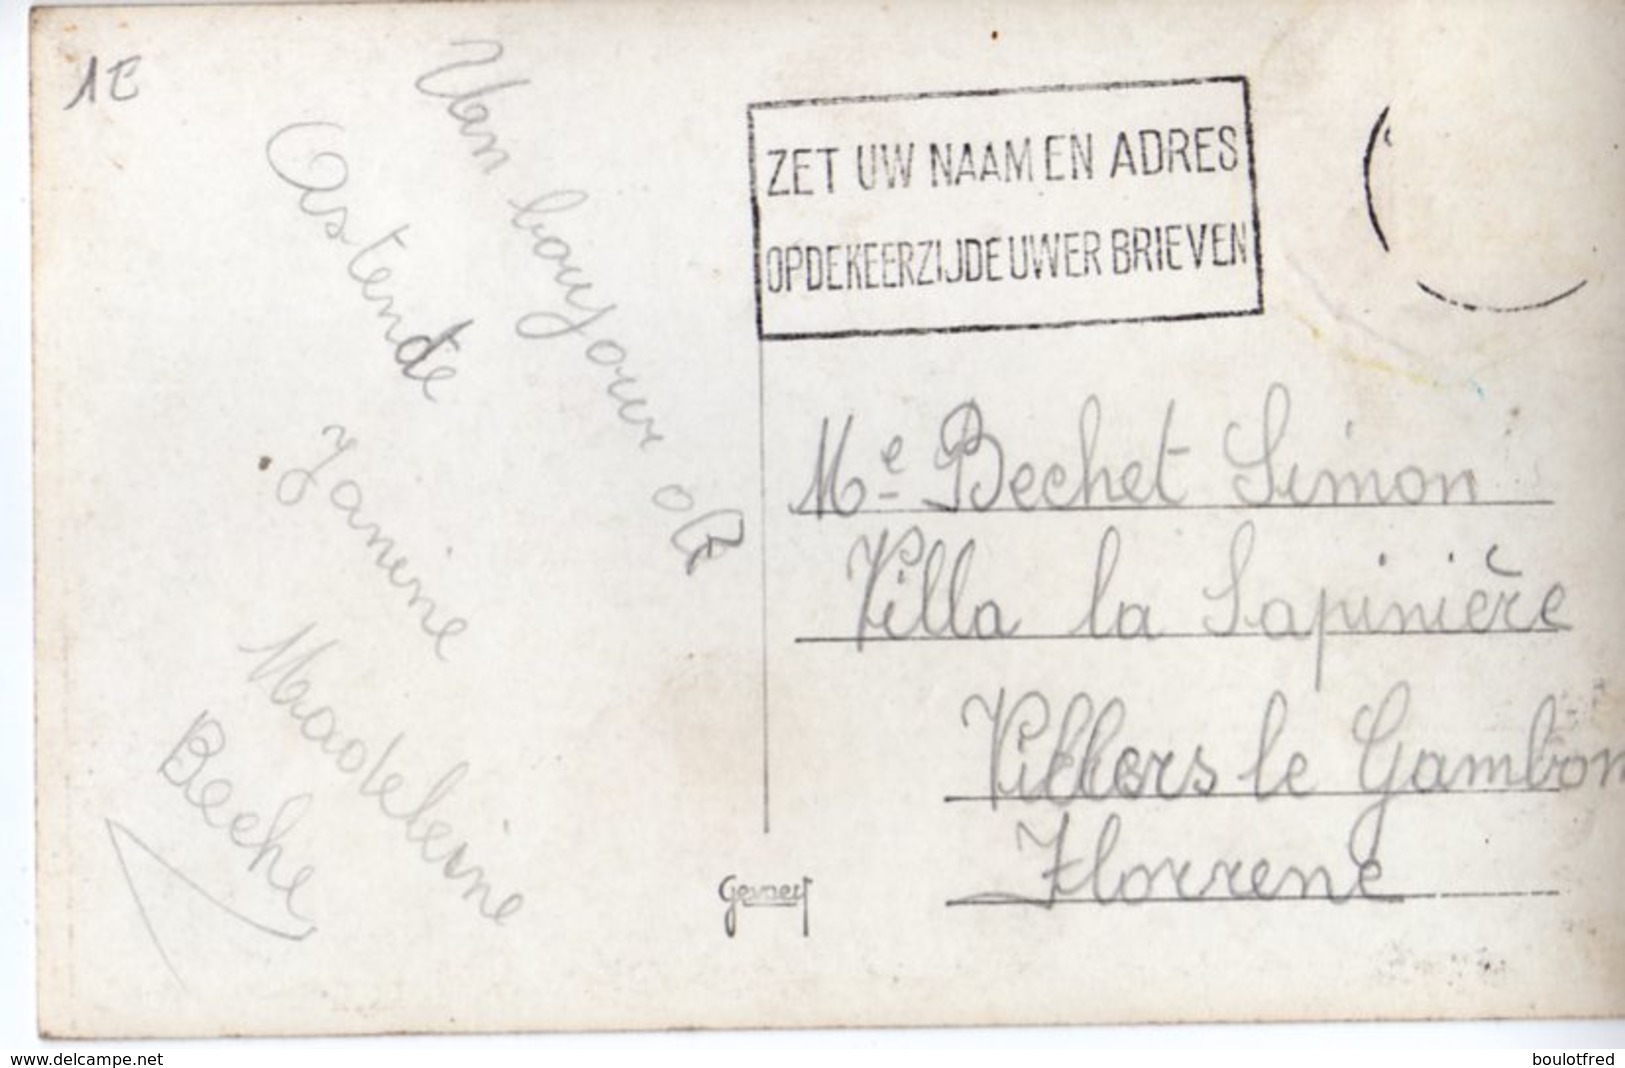 1E
Un bonjour d'
Ostende
Janine
Madeleine
Beche
ZET UW NAAM EN ADRES
OP DE KEERZIJDE UWER BRIEVEN
Me Bechet Simon
Villa la Sapinière
Villers le Gambon
Florrene
Gevaert
www.delcampe.net
boulotfred